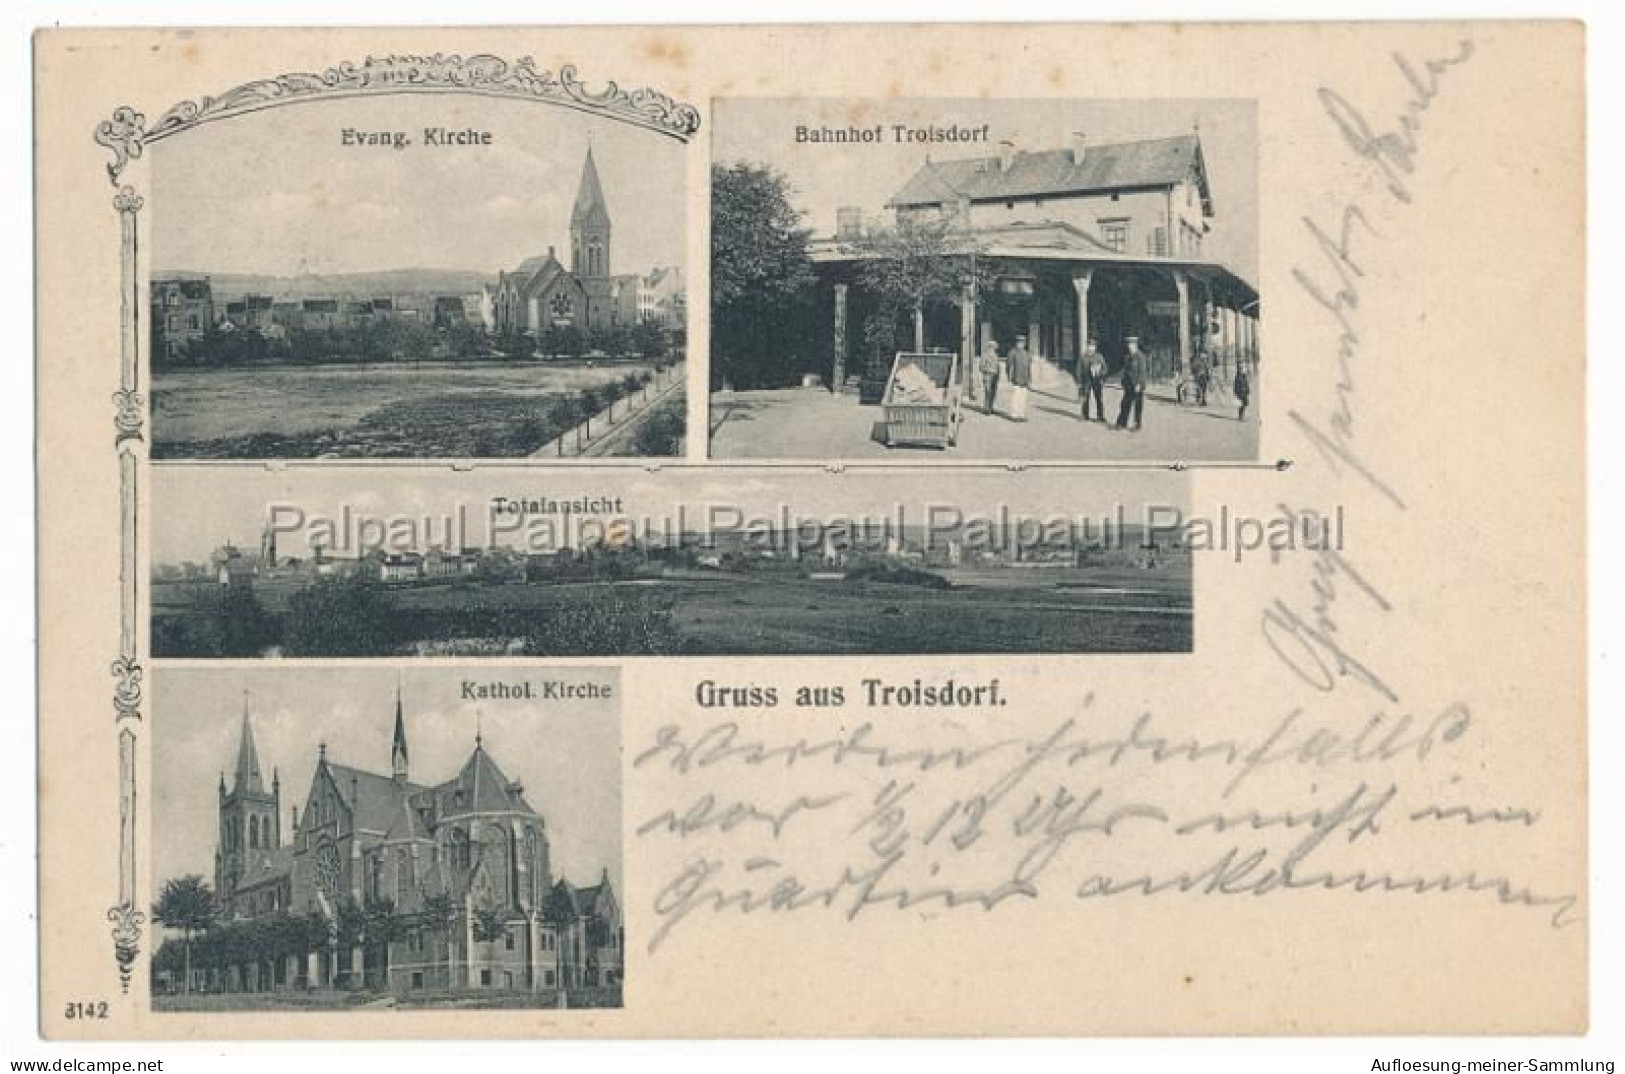 Evang. Kirche
Bahnhof Troisdorf
Totalansicht
Palpaul Palpaul Palpaul Palpaul Palpaul
Kathol. Kirche
Gruss aus Troisdorf.
Werden jedenfalls
vor 1/2 12 Uhr nicht im
Quartier ankommen
3142
delcampe.net
Aufloesung-meiner-Sammlung